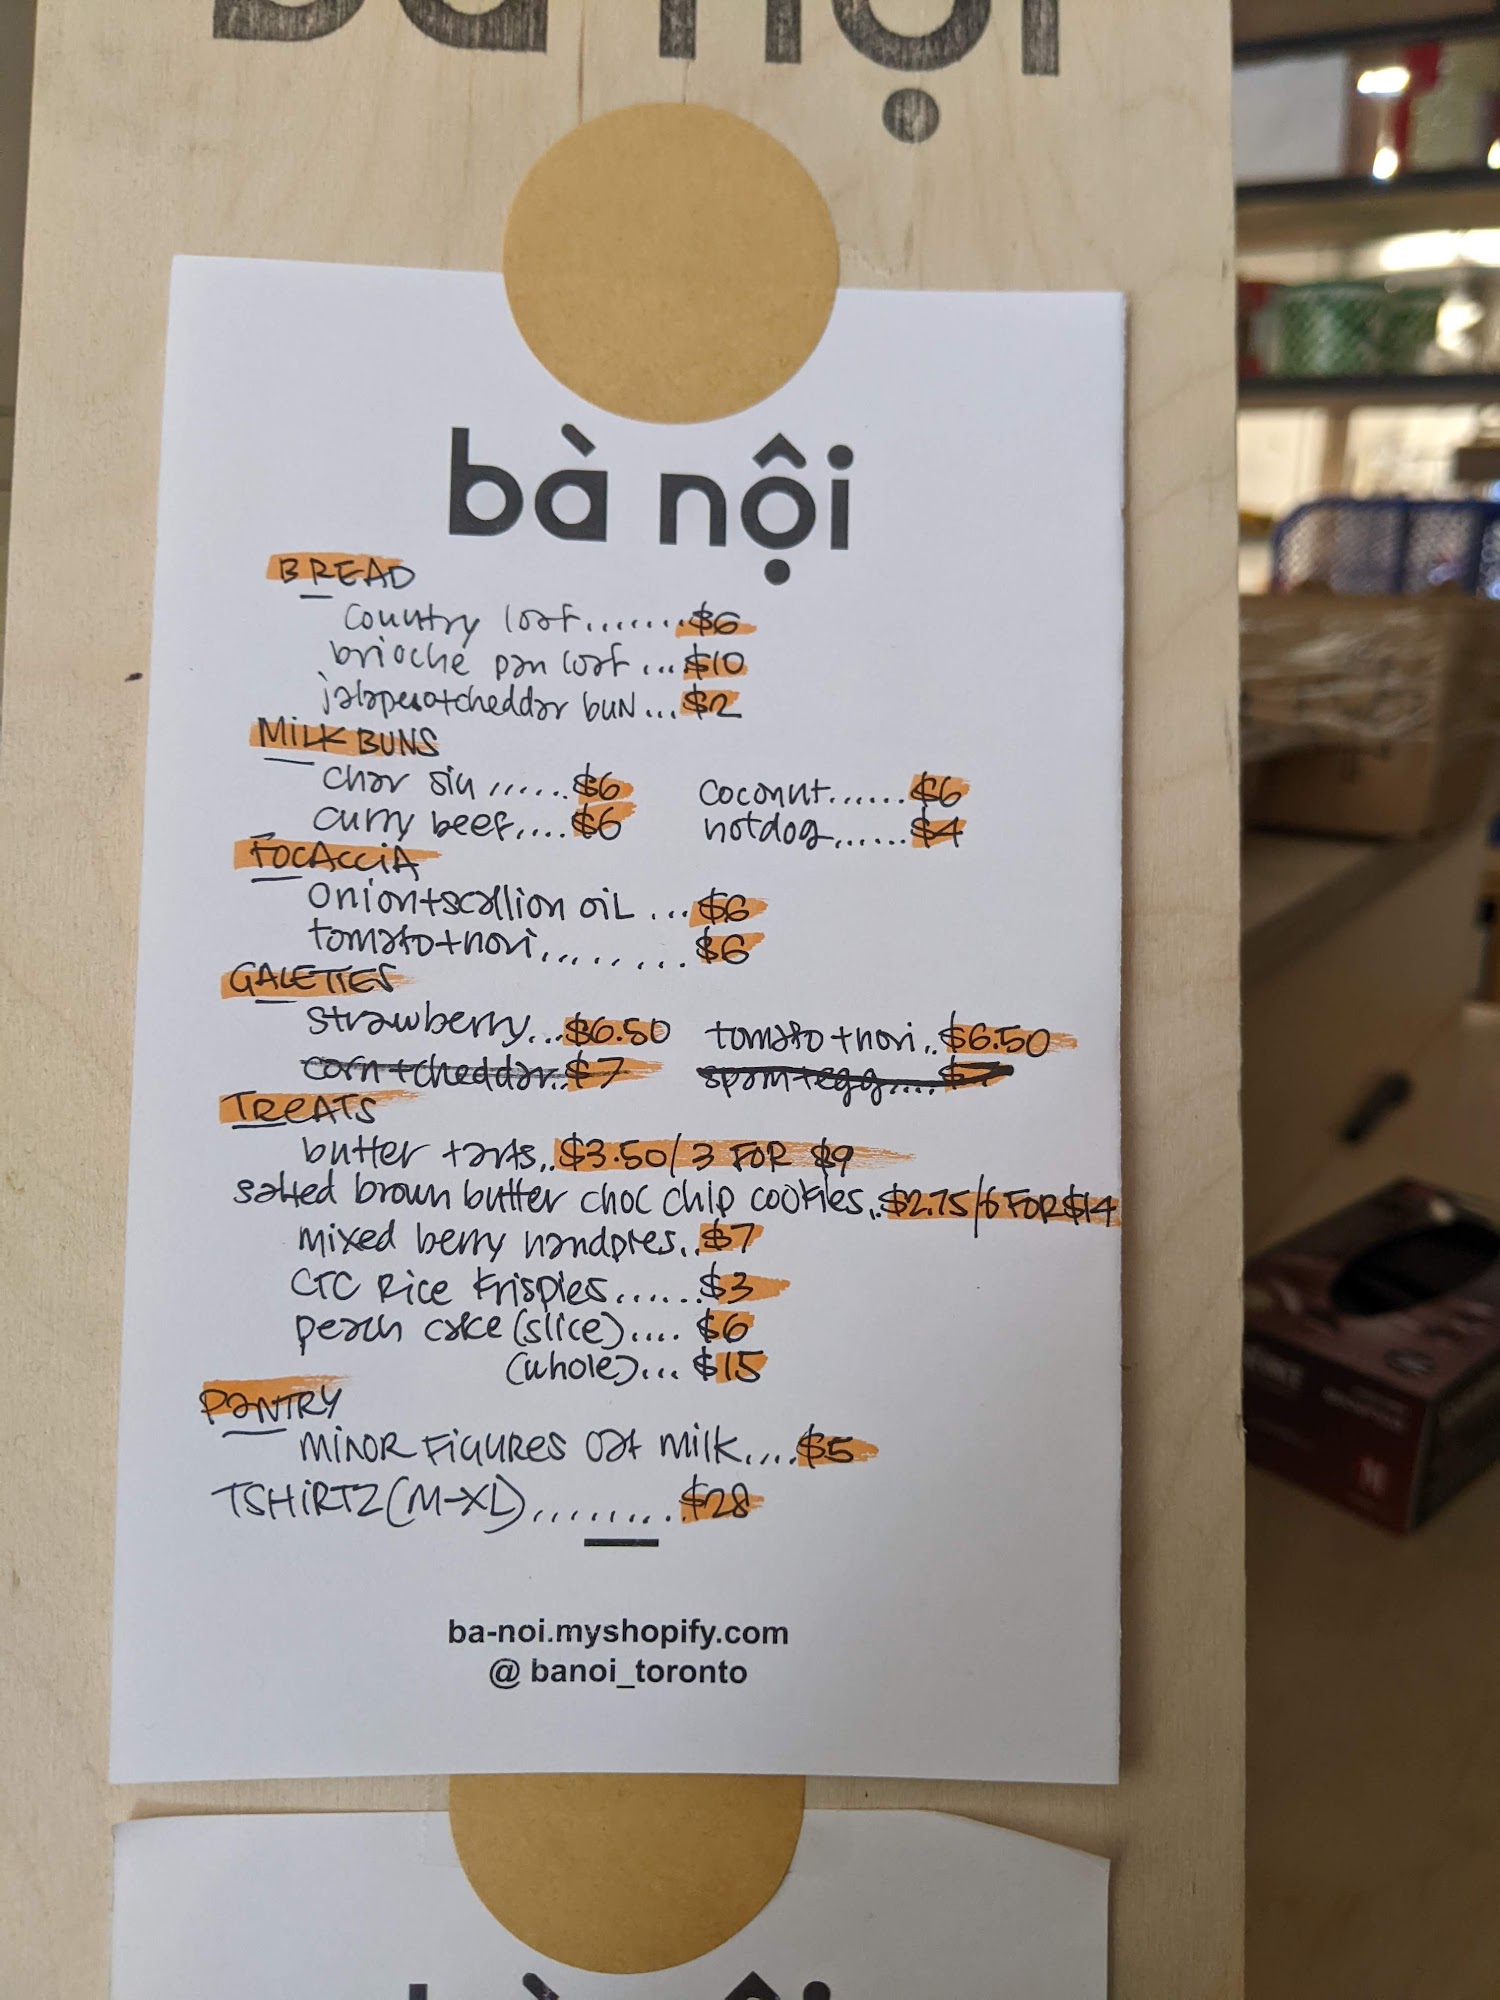 bà nội
bà nội
BREAD
country loaf.......$6
brioche pan loaf...$10
jalapeno+cheddar bun...$2
MILK BUNS
char siu......$6 coconut......$6
curry beef....$6 hotdog......$4
FOCACCIA
onion+scallion oil...$6
tomato+nori........$6
GALETTES
strawberry...$6.50 tomato+nori..$6.50
corn+cheddar..$7 spam+egg....$7
TREATS
butter tarts..$3.50/3 FOR $9
salted brown butter choc chip cookies..$2.75/6 FOR $14
mixed berry handpies..$7
CTC Rice Krispies......$3
peach cake (slice)....$6
(whole)...$15
PANTRY
MINOR FIGURES oat milk....$5
TSHIRTZ (M-XL).........$28
ba-noi.myshopify.com
@ banoi_toronto
bà nội